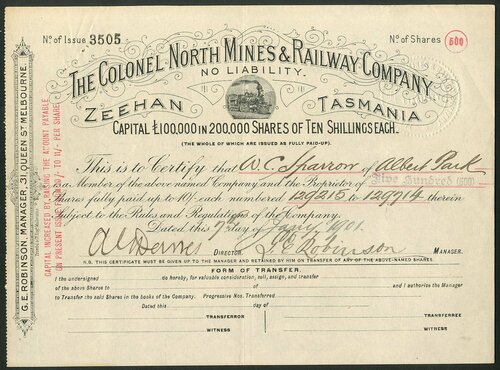 No. of Issue 3505
No. of Shares 500
THE COLONEL NORTH MINES & RAILWAY COMPANY
NO LIABILITY.
ZEEHAN TASMANIA
CAPITAL £100,000 IN 200,000 SHARES OF TEN SHILLINGS EACH.
(THE WHOLE OF WHICH ARE ISSUED AS FULLY PAID-UP.)
This is to Certify that W C Sparrow of Albert Park
is a Member of the above named Company and the Proprietor of Five Hundred (500)
Shares fully paid up to 10/- each numbered 129215 to 129714 therein
subject to the Rules and Regulations of the Company.
Dated this 7th day of Jany 1901.
DIRECTOR G E Robinson MANAGER.
N.B. THIS CERTIFICATE MUST BE GIVEN UP TO THE MANAGER AND RETAINED BY HIM ON TRANSFER OF ANY OF THE ABOVE-NAMED SHARES.
FORM OF TRANSFER.
I the undersigned do hereby, for valuable consideration, sell, assign, and transfer
of the above Shares to of and I authorise the Manager
to Transfer the said Shares in the books of the Company. Progressive Nos. Transferred
Dated this day of 190
TRANSFEROR TRANSFEREE
WITNESS WITNESS
G. E. ROBINSON, MANAGER, 31, QUEEN ST MELBOURNE.
CAPITAL INCREASED BY RAISING THE AMOUNT PAYABLE
ON PRESENT ISSUE FROM 10/- TO 11/- PER SHARE